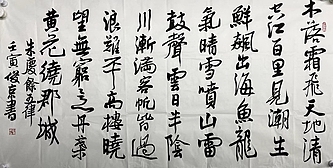 木落霜飛天地清
空江百里見潮生
鮮飆出海魚龍
氣晴雪噴山雷
鼓聲雲日半陰
川漸滿客帆皆過
浪難平高樓曉
望無窮意丹葉
黃花繞郡城
朱慶餘五律
壬寅俊書